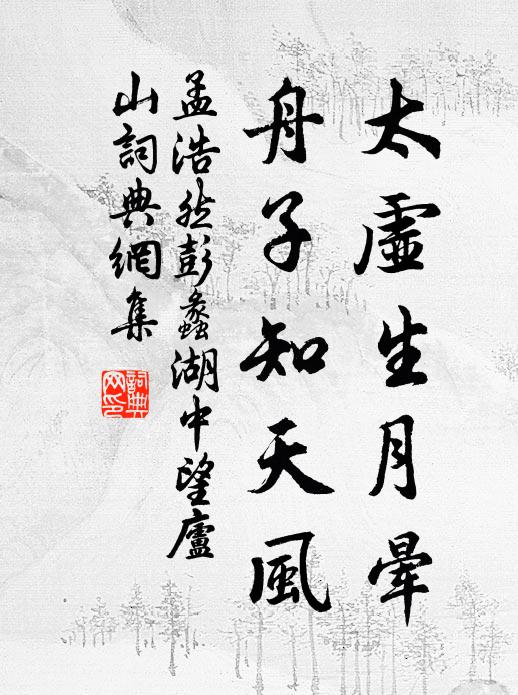 太虛生月暈
舟子知天風
孟浩然彭蠡湖中望廬
山詞典網集
詞典
网印